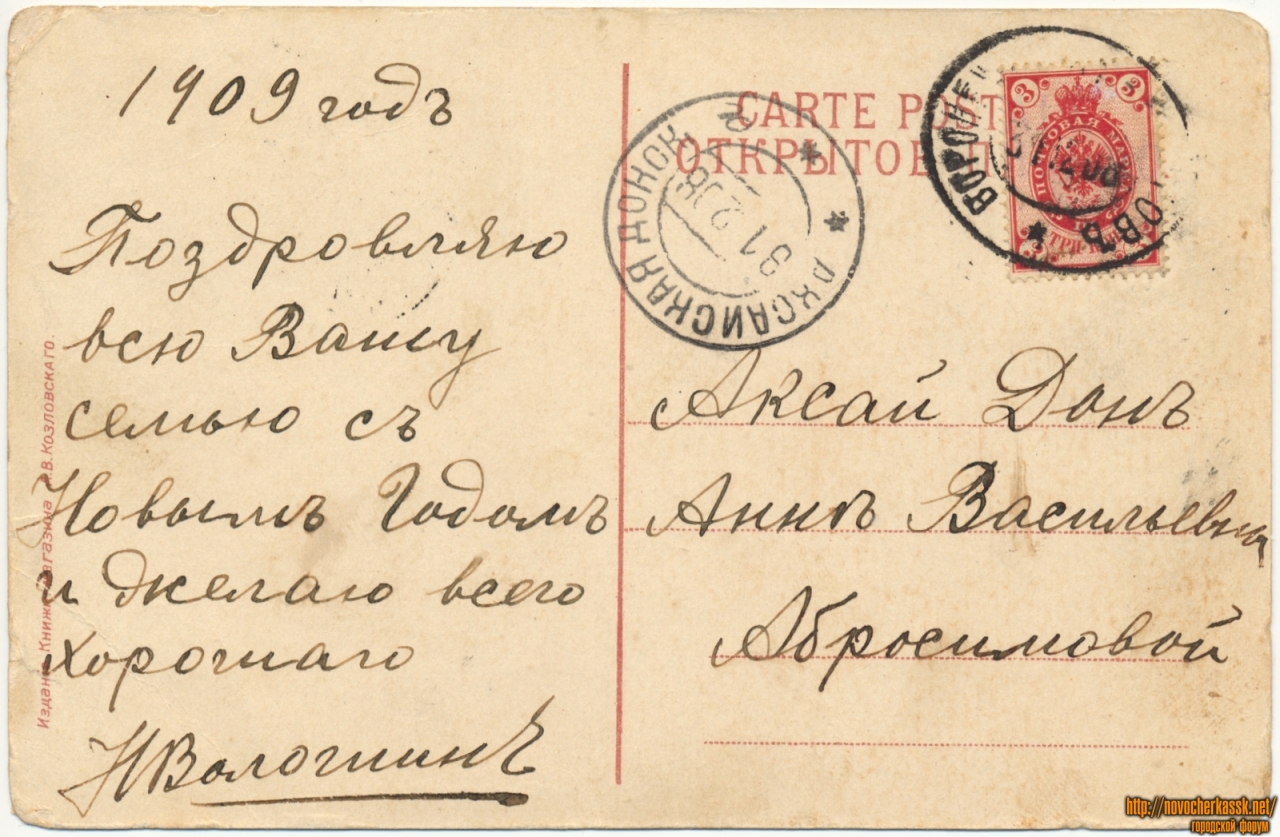 1909 годъ
Поздровляю
всю Вашу
семью съ
Новымъ Годомъ
и желаю всего
хорошаго
НВологшинъ
Издан. Книжн. магазина .В.КОЗЛОВСКАГО.
CARTE POST
ОТКРЫТОЕ П
АКСАЙСКАЯ ДОНСК.
31 12 08
3 3
ПОЧТОВАЯ МАРКА
ТРИ
ВОРОНЕ
ОВЪ
31.12.08
Аксай Донъ
Аннѣ Васильевна
Абросимовой
http://novocherkassk.net/
городской форум